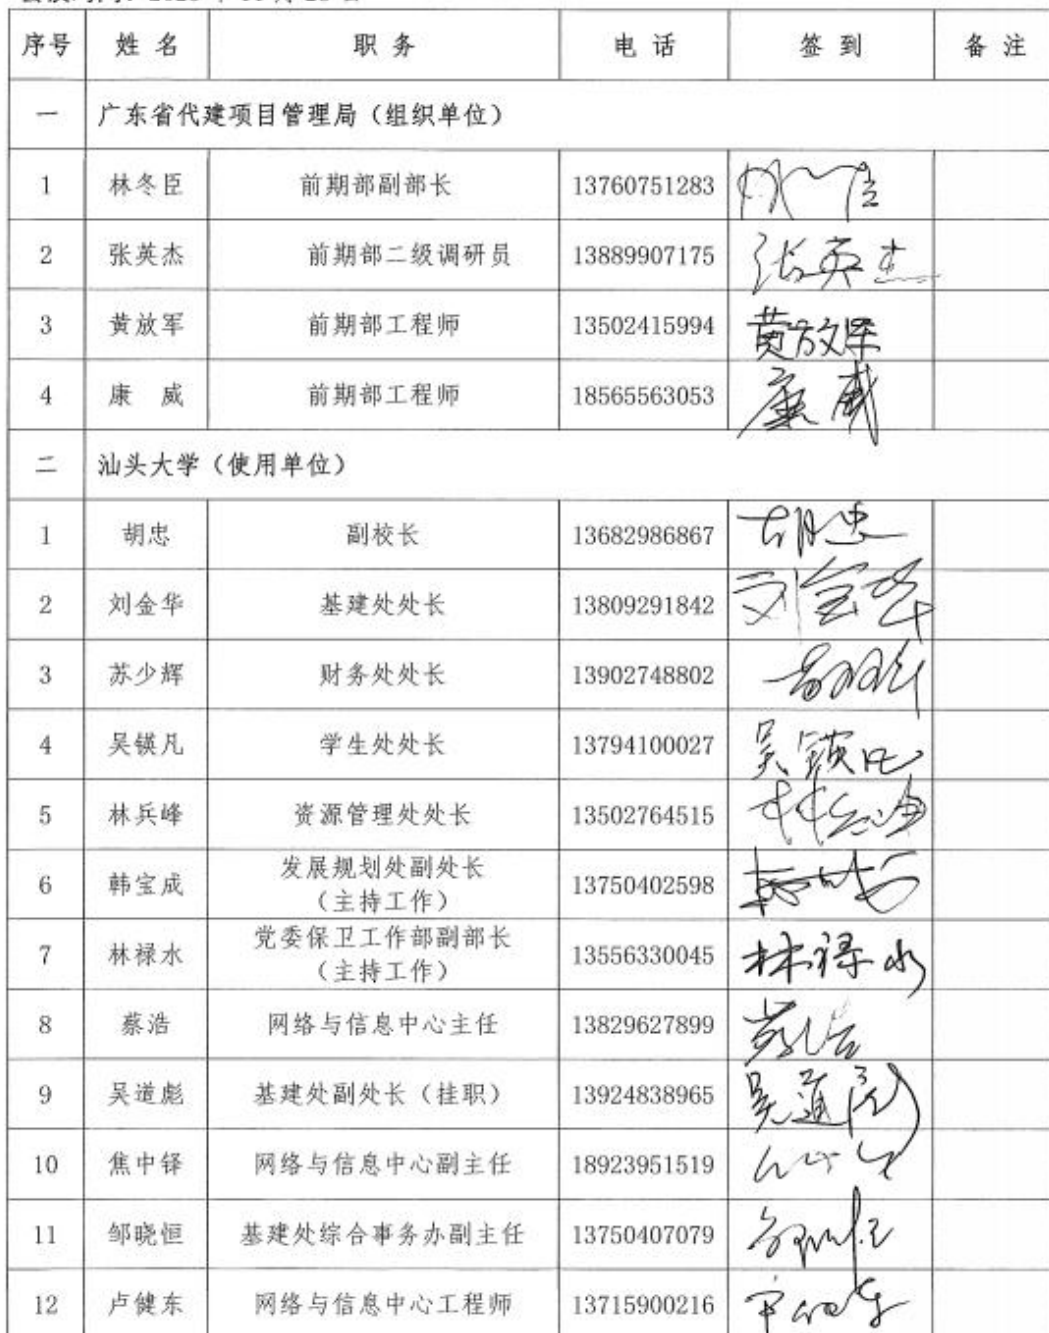 序号 姓 名 职 务 电 话 签 到 备 注
一 广东省代建项目管理局（组织单位）
1 林冬臣 前期部副部长 13760751283
2 张英杰 前期部二级调研员 13889907175 张英杰
3 黄放军 前期部工程师 13502415994 黄放军
4 康 威 前期部工程师 18565563053 康威
二 汕头大学（使用单位）
1 胡忠 副校长 13682986867 胡忠
2 刘金华 基建处处长 13809291842 刘金华
3 苏少辉 财务处处长 13902748802
4 吴锳凡 学生处处长 13794100027 吴锳凡
5 林兵峰 资源管理处处长 13502764515
6 韩宝成 发展规划处副处长 13750402598
（主持工作）
7 林禄水 党委保卫工作部副部长 13556330045 林禄水
（主持工作）
8 蔡浩 网络与信息中心主任 13829627899 蔡浩
9 吴道彪 基建处副处长（挂职） 13924838965 吴道彪
10 焦中铎 网络与信息中心副主任 18923951519
11 邹晓恒 基建处综合事务办副主任 13750407079
12 卢健东 网络与信息中心工程师 13715900216